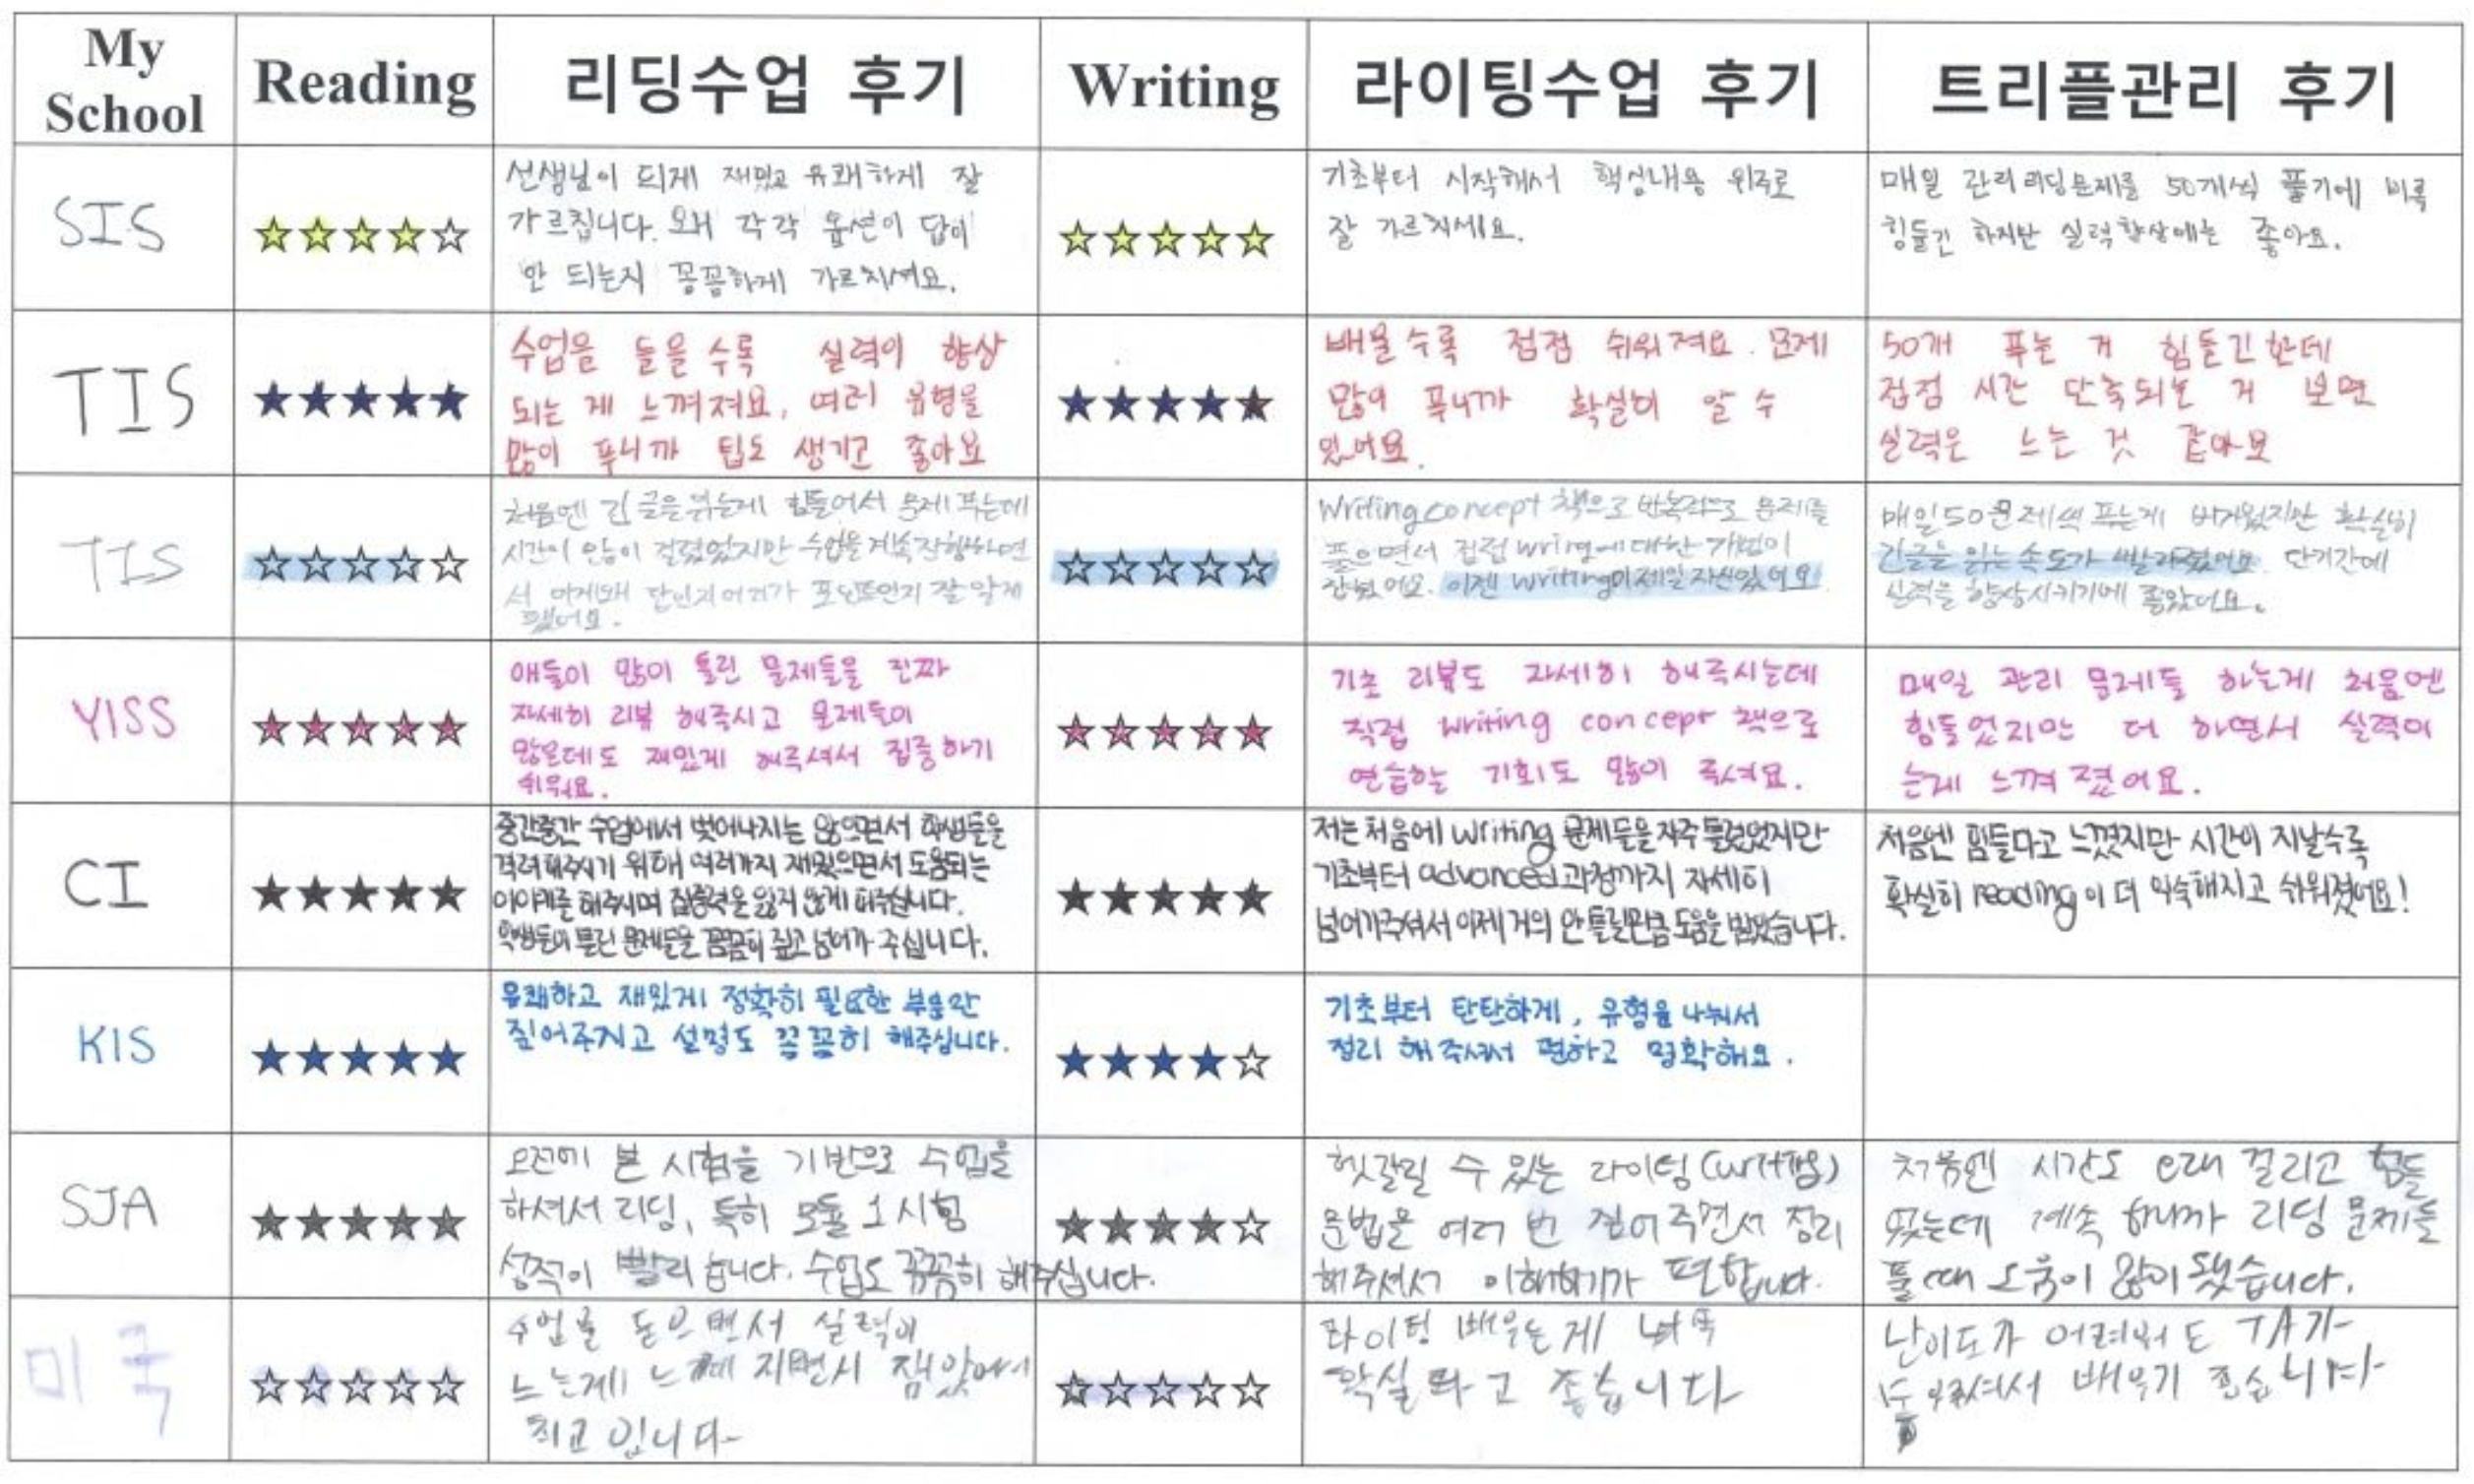 My School
Reading
리딩수업 후기
Writing
라이팅수업 후기
트리플관리 후기
SIS
선생님이 되게 재밌고 유쾌하게 잘
가르칩니다. 왜 각각 옵션이 답이
안 되는지 꼼꼼하게 가르치셔요.
기초부터 시작해서 핵심내용 위주로
잘 가르치세요.
매일 관리 리딩문제를 50개씩 풀기에 비록
힘들긴 하지만 실력향상에는 좋아요.
TIS
수업을 들을수록 실력이 향상
되는 게 느껴져요, 여러 유형을
많이 푸니까 팁도 생기고 좋아요
배울수록 점점 쉬워져요. 문제
많이 푸니까 확실히 알 수
있어요.
50개 푸는 거 힘들긴한데
점점 시간 단축되는 거 보면
실력은 느는 것 같아요
TIS
처음엔 긴 글을 읽는게 힘들어서 문제 푸는데
시간이 많이 걸렸었지만 수업을 계속 진행하면
서 이게 왜 답인지 어디가 포인트인지 잘 알게
됐어요.
Writing concept 책으로 반복적으로 문제를
풀으면서 점점 writing에 대한 개념이
잡혔어요. 이젠 writing이 제일 자신있어요.
매일 50문제씩 푸는게 버거웠지만 확실히
긴글을 읽는 속도가 빨라졌어요. 단기간에
실력을 향상시키기에 좋았어요.
YISS
애들이 많이 틀린 문제들을 진짜
자세히 리뷰 해주시고 문제들이
많은데도 재밌게 해주셔서 집중하기
쉬워요.
기초 리뷰도 자세히 해주시는데
직접 writing concept 책으로
연습하는 기회도 많이 주셔요.
매일 관리 문제들 하는게 처음엔
힘들었지만 더 하면서 실력이
는게 느껴졌어요.
CI
중간중간 수업에서 벗어나지는 않으면서 학생들을
격려해주시기 위해 여러가지 재밌으면서 도움되는
이야기를 해주시며 집중력을 잃지 않게 해주십니다.
학생들이 틀린 문제들을 꼼꼼히 짚고 넘어가 주십니다.
저는 처음에 writing 문제들을 자주 틀렸었지만
기초부터 advanced 과정까지 자세히
넘어가주셔서 이제 거의 안 틀릴만큼 도움을 받았습니다.
처음엔 힘들다고 느꼈지만 시간이 지날수록
확실히 reading이 더 익숙해지고 쉬워졌어요!
KIS
유쾌하고 재밌게 정확히 필요한 부분만
짚어주시고 설명도 꼼꼼히 해주십니다.
기초부터 탄탄하게, 유형을 나눠서
정리 해주셔서 편하고 명확해요.
SJA
오전에 본 시험을 기반으로 수업을
하셔서 리딩, 특히 모듈 1 시험
성적이 빨리 늡니다. 수업도 꼼꼼히 해주십니다.
헷갈릴 수 있는 라이팅
문법을 여러 번 짚어주면서 정리
해주셔서 이해하기가 편합니다.
처음엔 시간도 오래 걸리고 힘들
었는데 계속 하니까 리딩 문제들
풀 때 도움이 많이 됐습니다.
미국
수업을 들으면서 실력이
느는게 재밌어서
최고입니다
라이팅 배우는게
확실하고 좋습니다
난이도가 어려워도 TA가
배우기 좋습니다